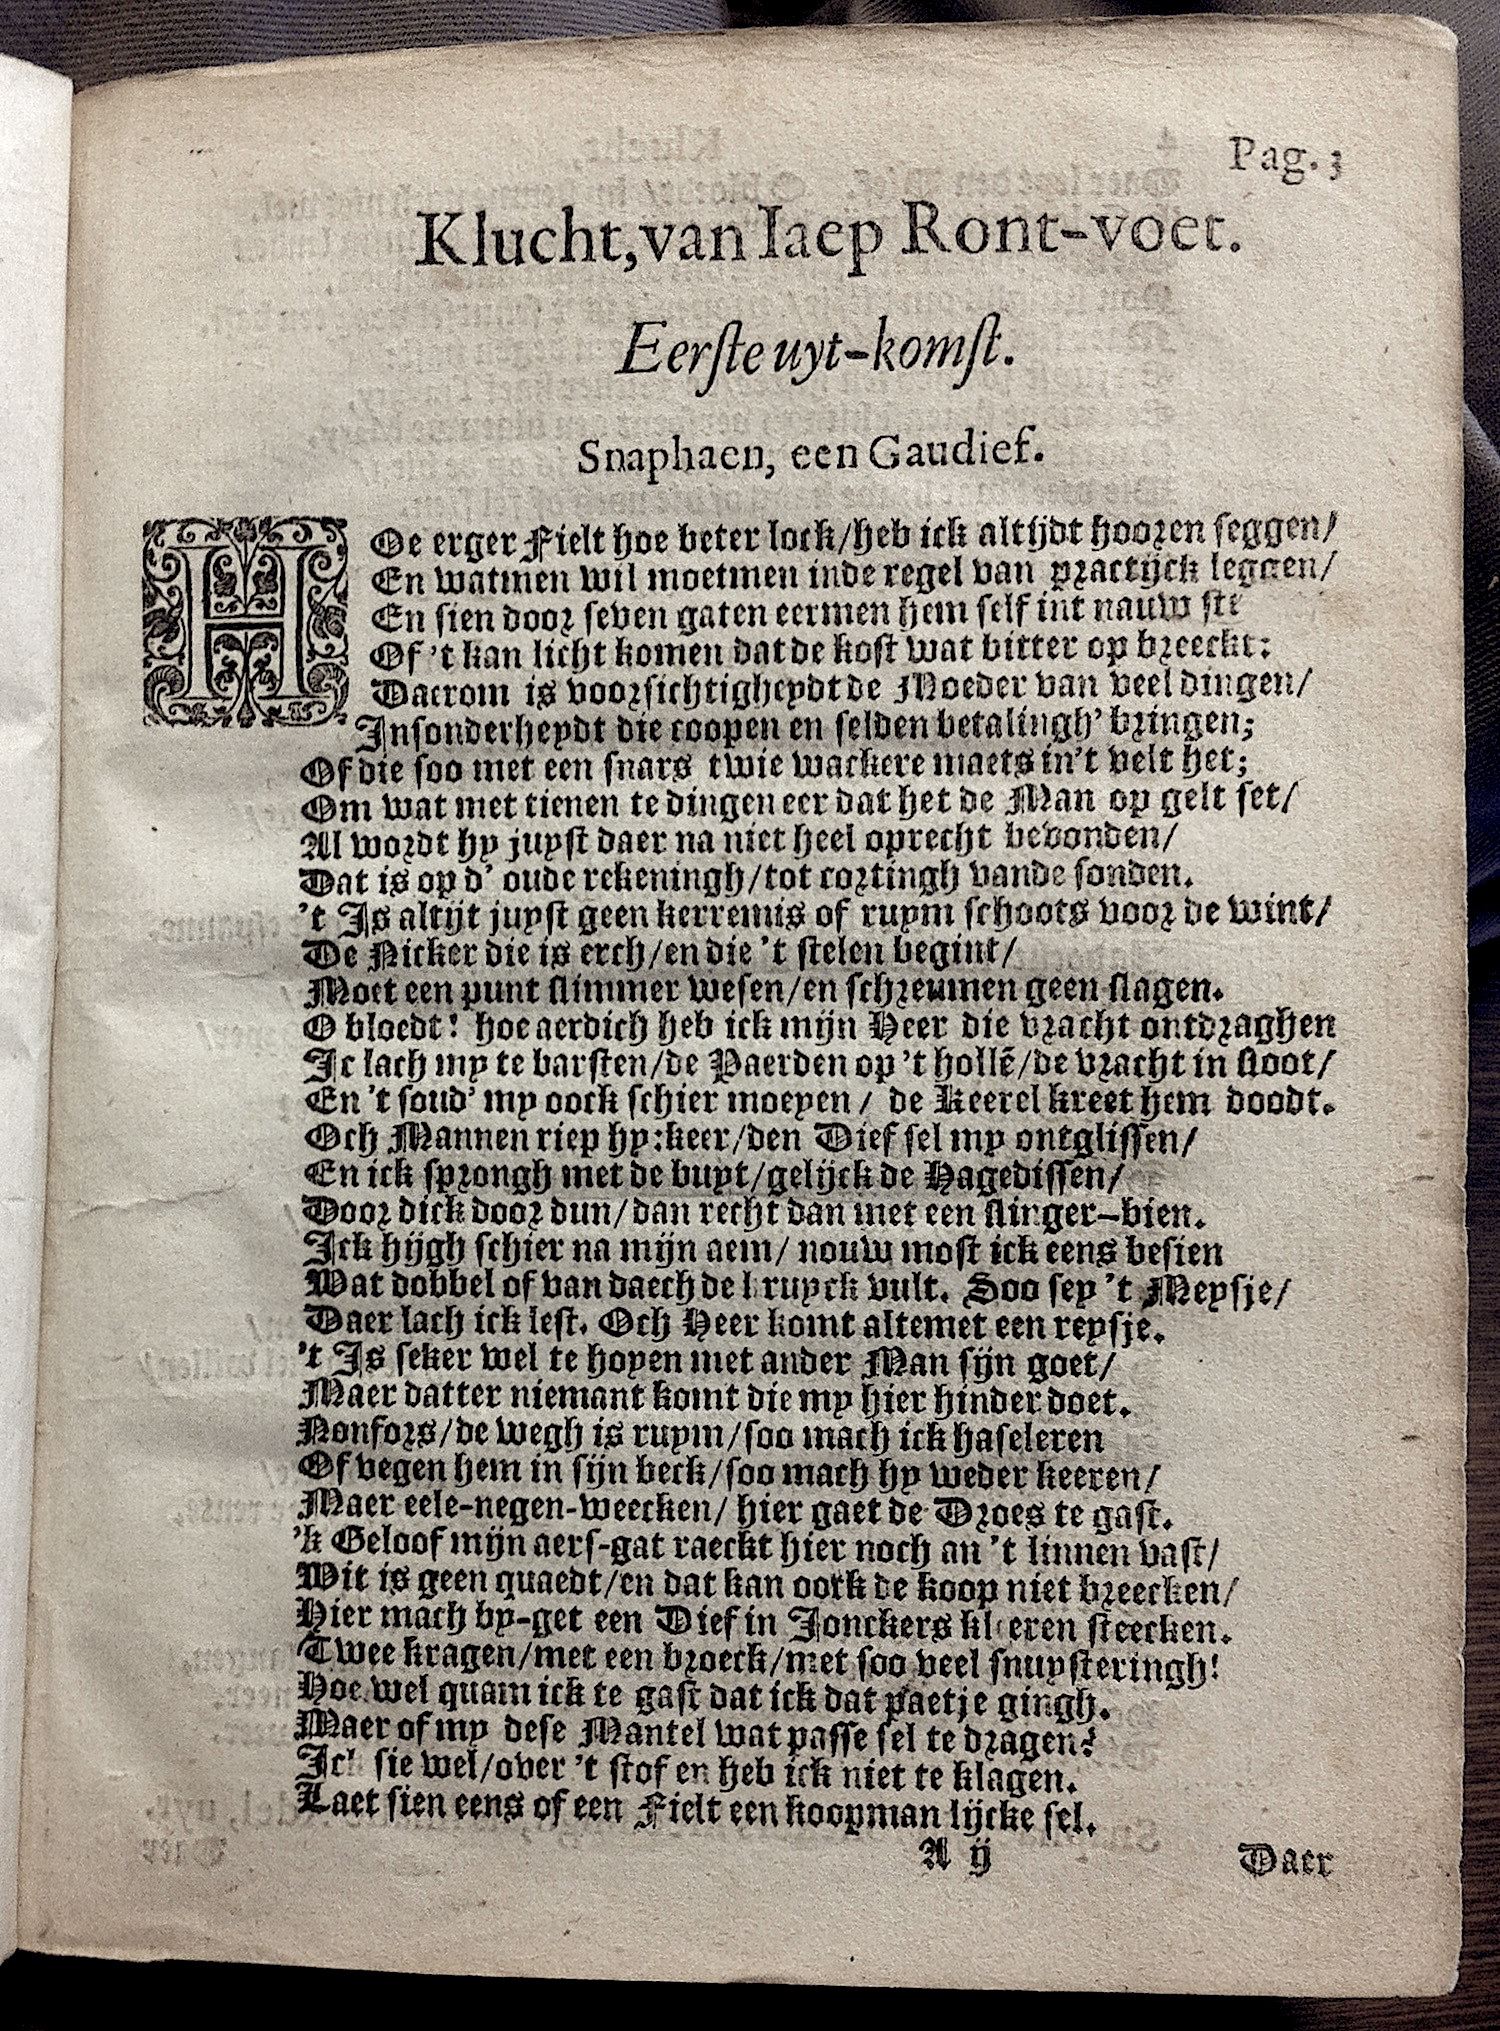 Pag. 3
Klucht, van Iaep Ront-voet.
Eerſte uyt-komſt.
Snaphaen, een Gaudief.
HOe erger Fielt hoe beter lock/heb ick altijdt hooren ſeggen/
En watmen wil moetmen inde regel van practijck leggen/
En ſien door ſeven gaten eermen hem ſelf int nauw
Of 't kan licht komen dat de koſt wat bitter op breeckt:
Daerom is voorſichtigheydt de Moeder van veel dingen/
Inſonderheydt die coopen en ſelden betalingh' bringen;
Of die ſoo met een ſnars twie wackere maets in't velt het;
Om wat met tienen te dingen eer dat het de Man op gelt ſet/
Al wordt hy juyſt daer na niet heel oprecht bevonden/
Dat is op d' oude rekeningh/tot cortingh vande ſonden.
't Is altijt juyſt geen kerremis of ruym ſchoots voor de wint/
De Nicker die is erch/en die 't ſtelen begint/
Moet een punt ſlimmer weſen/en ſchreumen geen ſlagen.
O bloedt! hoe aerdich heb ick mijn Heer die vracht ontdraghen
Ic lach my te barſten/de Paerden op 't hollē/de vracht in ſloot/
En 't ſoud' my oock ſchier moeyen/ de Keerel kreet hem doodt.
Och Mannen riep hy:keer/den Dief ſel my ontgliſſen/
En ick ſprongh met de buyt/gelijck de Hagediſſen/
Door dick door dun/dan recht dan met een ſlinger-bien.
Ick hijgh ſchier na mijn aem/ nouw moſt ick eens beſien
Wat dobbel of van daech de kruyck vult. Soo ſey 't Meyſje/
Daer lach ick leſt. Och Heer komt altemet een reyſje.
't Is ſeker wel te hopen met ander Man ſijn goet/
Maer datter niemant komt die my hier hinder doet.
Nonfors/de wegh is ruym/ſoo mach ick haſeleren
Of vegen hem in ſijn beck/ſoo mach hy weder keeren/
Maer eele-negen-weecken/ hier gaet de Droes te gaſt.
'k Geloof mijn aerſ-gat raeckt hier noch an 't linnen vaſt/
Wit is geen quaedt/en dat kan oock de koop niet breecken/
Hier mach by-get een Dief in Jonckers kleeren ſteecken.
Twee kragen/met een broeck/met ſoo veel ſnuyſteringh!
Hoe wel quam ick te gaſt dat ick dat paetje gingh.
Maer of my deſe Mantel wat paſſe ſel te dragen?
Ick ſie wel/over 't ſtof en heb ick niet te klagen.
Laet ſien eens of een Fielt een koopman lijcke ſel.
A ij
Daer